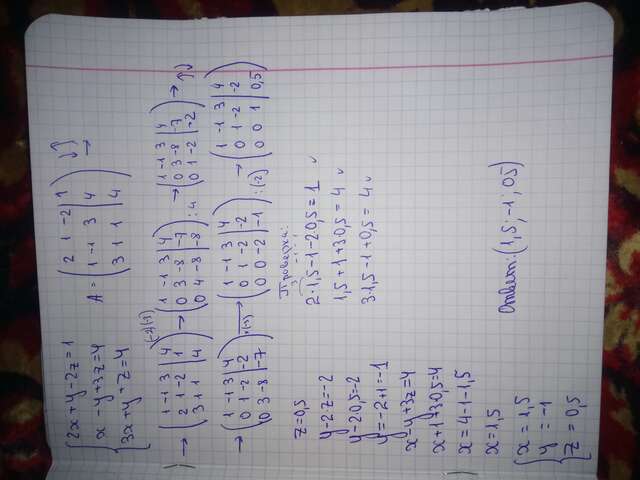 {2x+y-2z=1
x-y+3z=4
3x+y+z=4
A = (2 1 -2 | 1
1 -1 3 | 4
3 1 1 | 4) ↓↑ →
→ (1 -1 3 | 4
2 1 -2 | 1
3 1 1 | 4) (-2)(-3) → (1 -1 3 | 4
0 3 -8 | -7
0 4 -8 | -8) :4 → (1 -1 3 | 4
0 3 -8 | -7
0 1 -2 | -2) → ↑↓
→ (1 -1 3 | 4
0 1 -2 | -2
0 3 -8 | -7) ·(-3) → (1 -1 3 | 4
0 1 -2 | -2
0 0 -2 | -1) :(-2) → (1 -1 3 | 4
0 1 -2 | -2
0 0 1 | 0,5)
z=0,5
y-2z=-2
y-2·0,5=-2
y=-2+1=-1
x-y+3z=4
x+1+3·0,5=4
x=4-1-1,5
x=1,5
{x=1,5
y=-1
z=0,5
Проверка:
2·1,5-1-2·0,5=1 ✓
1,5+1+3·0,5=4 ✓
3·1,5-1+0,5=4 ✓
Ответ: (1,5; -1; 0,5)